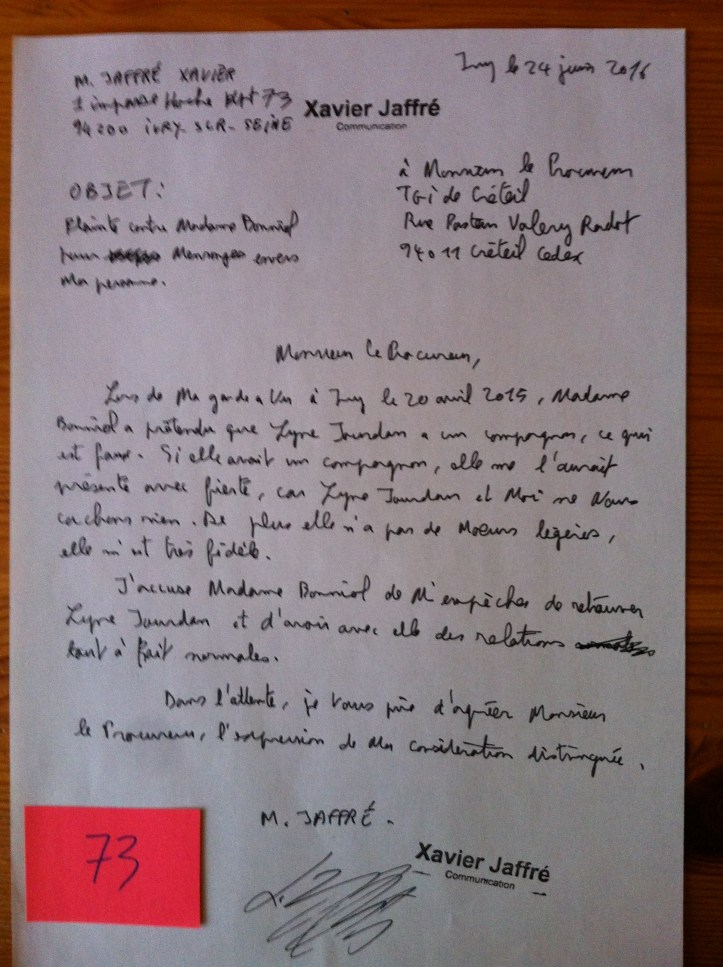 M. JAFFRÉ XAVIER
1 impasse Hoche Appt 73
94200 IVRY-SUR-SEINE
Ivry le 24 juin 2016
Xavier Jaffré
Communication
à Monsieur le Procureur
TGi de Créteil
Rue Pasteur Valery Radot
94011 Créteil Cedex
OBJET:
Plainte contre Madame Bonniol
pour Mensonges envers
Ma personne.
Monsieur le Procureur,
Lors de Ma garde a Vue à Ivry le 20 avril 2015, Madame
Bonniol a prétendu que Lyne Jourdan a un compagnon, ce qui
est faux. Si elle avait un compagnon, elle me l'aurait
présenté avec fierté, car Lyne Jourdan et Moi ne Nous
cachons rien. De plus elle n'a pas de Moeurs légères,
elle m'est très fidèle.
J'accuse Madame Bonniol de M'empêcher de retrouver
Lyne Jourdan et d'avoir avec elle des relations
tout à fait normales.
Dans l'attente, je Vous prie d'agréer Monsieur
le Procureur, l'expression de Ma considération distinguée.
M. JAFFRÉ.
Xavier Jaffré
Communication
73